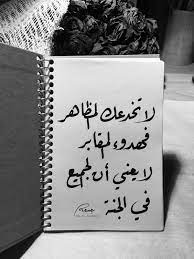 لا تخدعك المظاهر
فهدوء المقابر
لا يعني أن الجميع
في الجنة